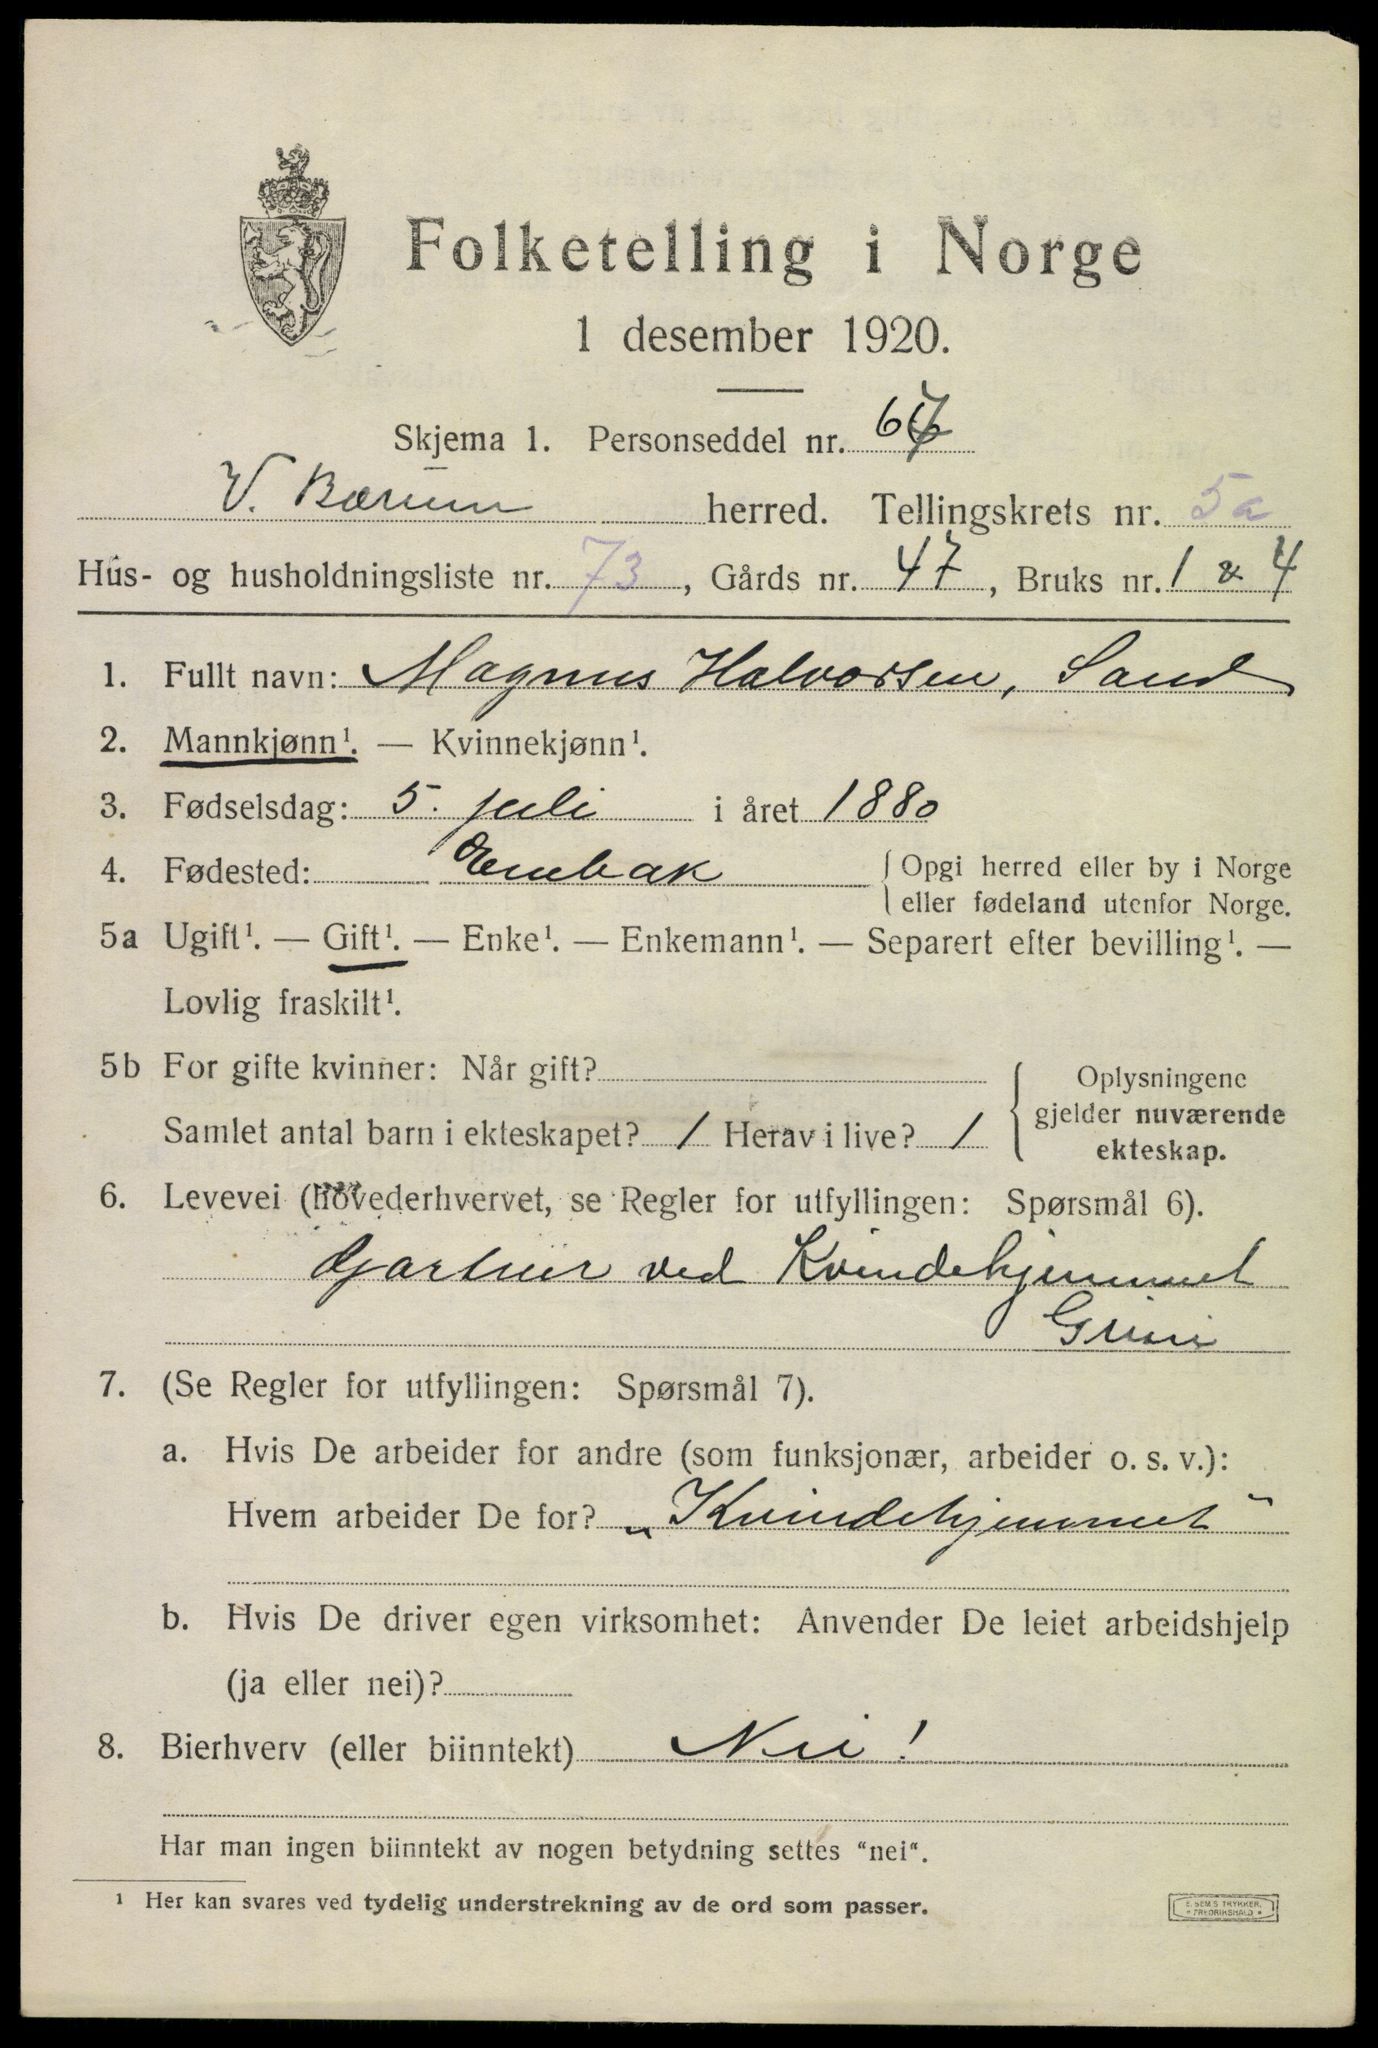 Folketelling i Norge
1 desember 1920.
Skjema 1. Personseddel nr. 67
V. Bærum herred. Tellingskrets nr. 5a
Hus- og husholdningsliste nr. 73, Gårds nr. 47, Bruks nr. 1 & 4
1. Fullt navn: Magnus Halvorsen, Sand
2. Mannkjønn¹. — Kvinnekjønn¹.
3. Fødselsdag: 5. juli i året 1880
4. Fødested: Enebak { Opgi herred eller by i Norge
eller fødeland utenfor Norge.
5a Ugift¹. — Gift¹. — Enke¹. — Enkemann¹. — Separert efter bevilling¹. —
Lovlig fraskilt¹.
5b For gifte kvinner: Når gift?
Samlet antal barn i ekteskapet? 1 Herav i live? 1
{ Oplysningene
gjelder nuværende
ekteskap.
6. Levevei (hovederhvervet, se Regler for utfyllingen: Spørsmål 6).
Gartner ved Kvindehjemmet
Grini
7. (Se Regler for utfyllingen: Spørsmål 7).
a. Hvis De arbeider for andre (som funksjonær, arbeider o. s. v.):
Hvem arbeider De for? „Kvindehjemmet"
b. Hvis De driver egen virksomhet: Anvender De leiet arbeidshjelp
(ja eller nei)?
8. Bierhverv (eller biinntekt) Nei!
Har man ingen biinntekt av nogen betydning settes "nei".
¹ Her kan svares ved tydelig understrekning av de ord som passer.
E. SEM'S TRYKKERI,
* FREDRIKSHALD *